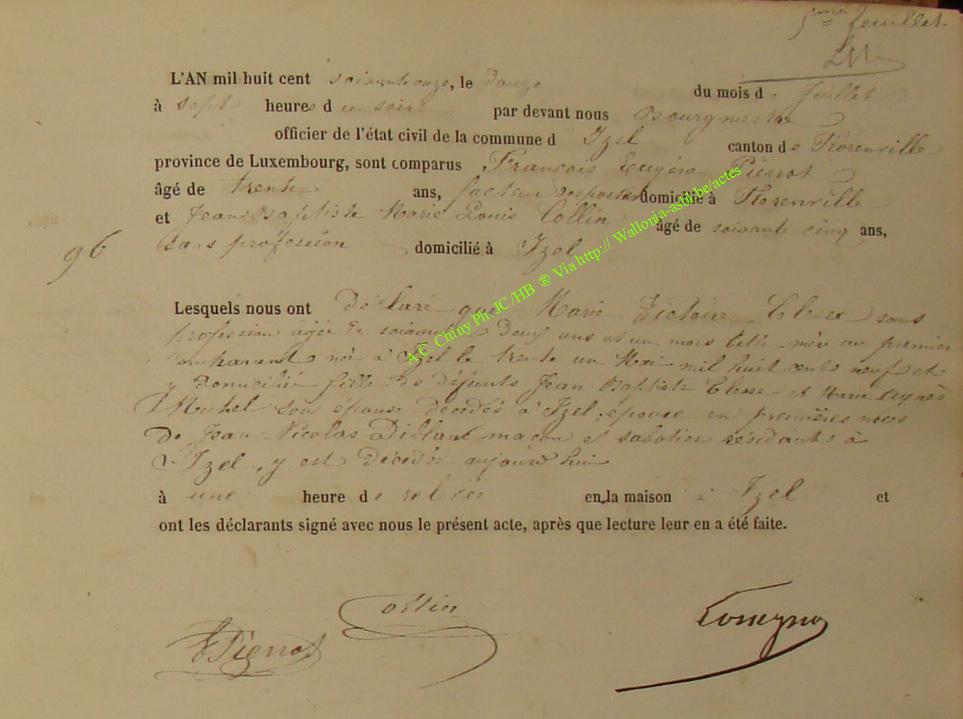 5me feuillet
L'AN mil huit cent soixante onze, le douze du mois de Juillet
à sept heures du soir par devant nous Bourgmestre
officier de l'état civil de la commune d Izel canton de Florenville
province de Luxembourg, sont comparus François Eugène Pierrot
âgé de trente ans, facteur des postes domicilié à Florenville
et Jean Baptiste Marie Louis Collin âgé de soixante cinq ans,
96
sans profession domicilié à Izel
Lesquels nous ont déclaré que Marie Victoire Clesse sans
profession agée de soixante deux ans et un mois belle mère au premier
comparant née à Izel le trente un Mai mil huit cent neuf et
y domiciliée fille de défunts Jean Baptiste Clesse et Marie Agnès
Michel son épouse décédés à Izel, épouse en premières noces
de Jean Nicolas Diblant maçon et sabotier résidant à
Izel, y est décédée aujourd'hui
à une heure de en la maison à Izel et
ont les déclarants signé avec nous le présent acte, après que lecture leur en a été faite.
Collin
Pierrot
A.C. Chiny Ph-JC /HB ® Via http:// Wallonia-asbl.be/actes